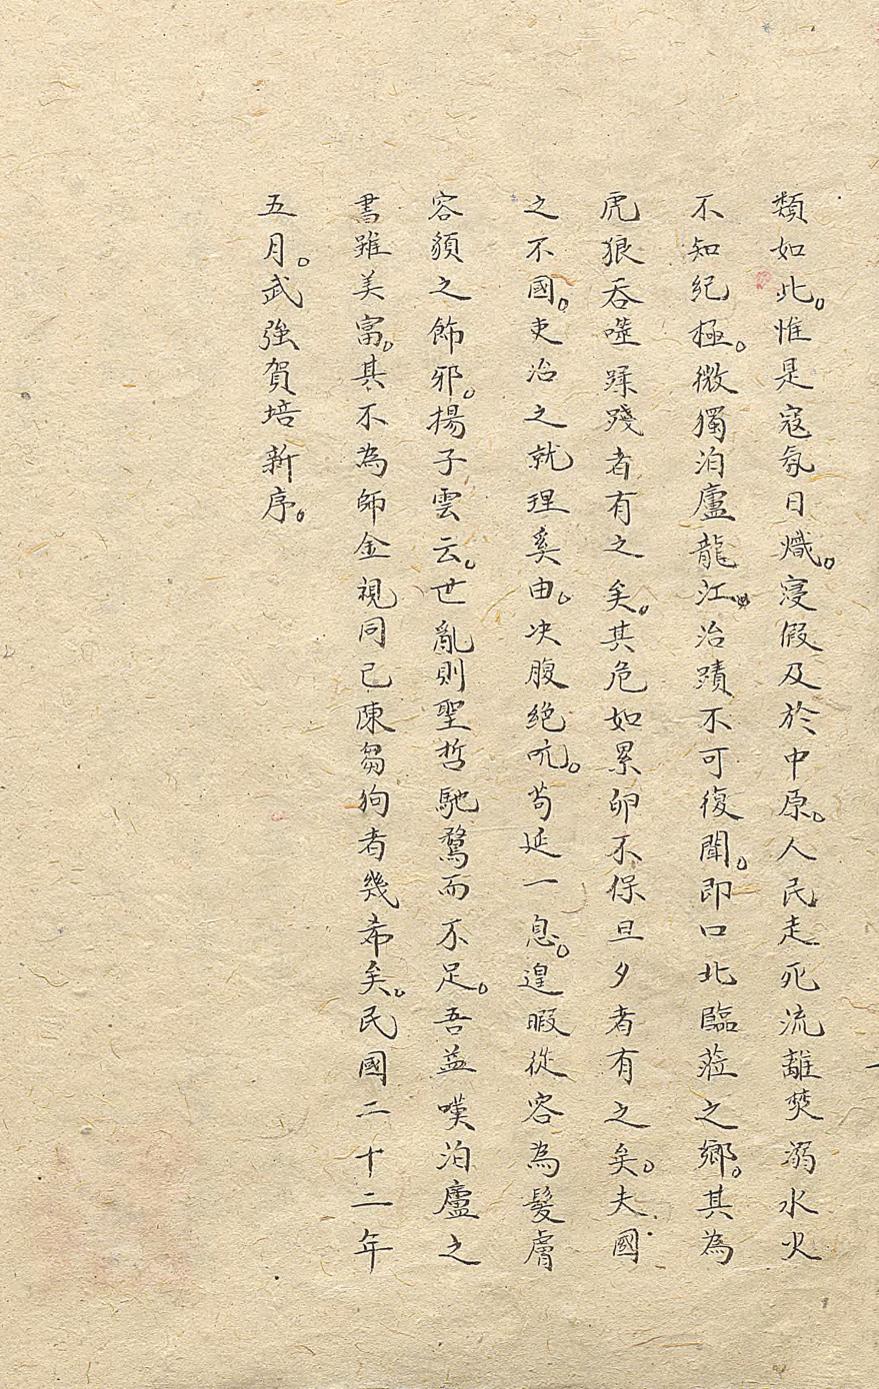 類如此。惟是寇氛日熾。寖假及於中原。人民走死流離焚溺水火
不知紀極。微獨泊廬龍江治蹟不可復聞。即口北臨蒞之鄉。其為
虎狼吞噬蹂踐者有之矣。其危如累卵不保旦夕者有之矣。夫國
之不國。吏治之就理奚由。决腹絕吭。苟延一息。遑暇從容為髮膚
容額之飾邪。揚子雲云。世亂則聖哲馳騖而不足。吾益嘆泊廬之
書雖美富。其不為師金視同已陳芻狗者幾希矣。民國二十二年
五月。武強賀培新序。